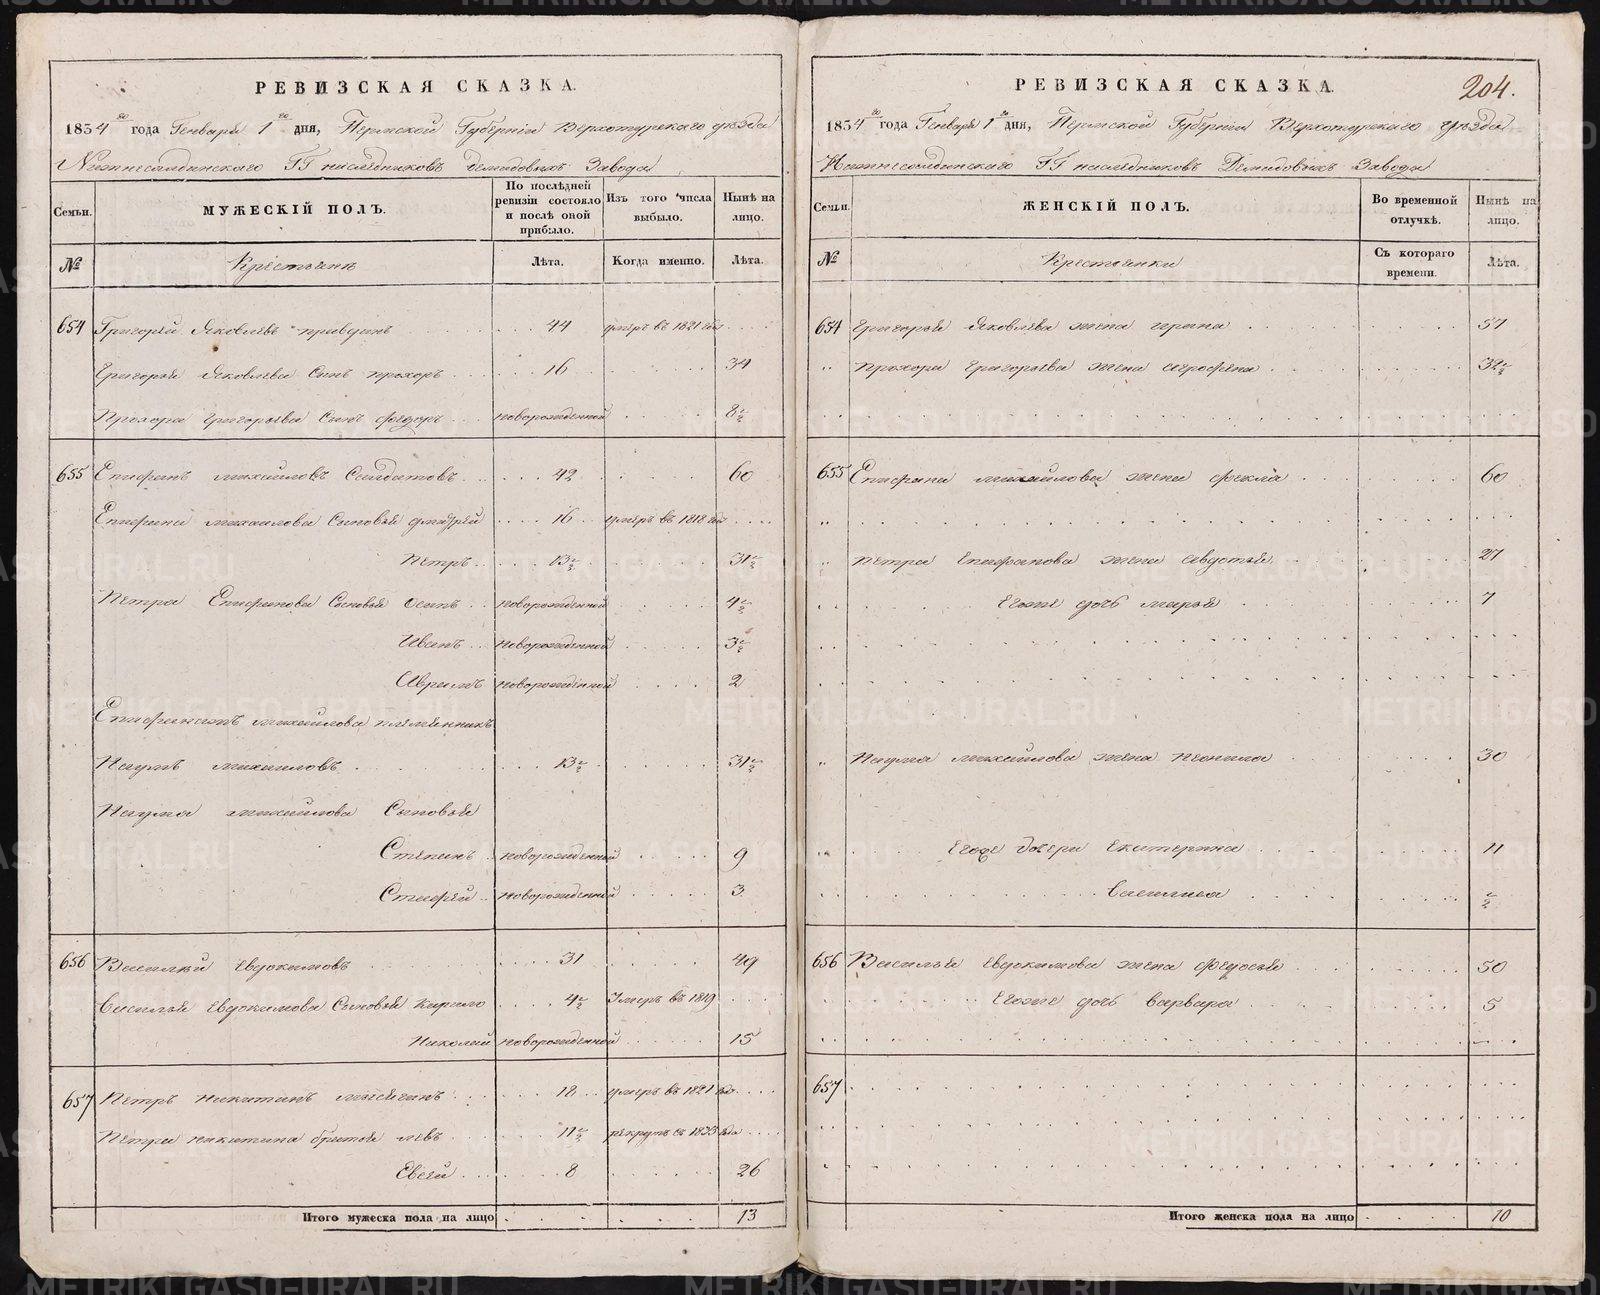 РЕВИЗСКАЯ СКАЗКА.
1834 го года Генваря 1 го дня, Пермской Губернiи Верхотурскаго уѣзда
Нижнесалдинскаго ГГ наслѣдниковъ Демидовыхъ Завода
Семьи. МУЖЕСКІЙ ПОЛЪ. По послѣдней ревизіи состояло и послѣ оной прибыло. Изъ того числа выбыло. Нынѣ на лицо.
№ Крестьянъ Лѣта. Когда именно. Лѣта.
654 Григорей Яковлевъ правдинъ 44 умеръ въ 1821 году
Григорья Яковлева Сынъ прохоръ 16 34
Прохора григорьева Сынъ федоръ новорожденной 8 ½
655 Епифанъ михайловъ Солдатовъ 42 60
Епифана михайлова Сыновья дмитрей 16 умеръ въ 1818 году
Петръ 13 ½ 31 ½
Петра Епифанова Сыновья Осипъ новорожденной 4 ½
Иванъ новорожденной 3 ½
Аврамъ новорожденной 2
Епифана михайлова племянникъ
Наумъ михайловъ 13 ½ 31 ½
Наума михайлова Сыновья
Степанъ новорожденной 9
Стафей новорожденной 3
656 Василей Евдокимовъ 31 49
Василья Евдокимова Сыновья Кирило 4 ½ Умеръ въ 1819
Николай новорожденной 15
657 Петръ никитинъ 18 умеръ въ 1821 году
Петра никитина братья левъ 11 ½ рекрутъ съ 1833 года
Евсей 8 26
Итого мужеска пола на лицо 13
РЕВИЗСКАЯ СКАЗКА. 204.
1834 го года Генваря 1 го дня, Пермской Губернiи Верхотурскаго уѣзда
Нижнесалдинскаго ГГ наслѣдниковъ Демидовыхъ Завода
Семьи. ЖЕНСКІЙ ПОЛЪ. Во временной отлучкѣ. Нынѣ на лицо.
№ Крестьянки Съ котораго времени. Лѣта.
654 Григорья Яковлева жена ирина 57
" Прохора григорьева жена агрофена 32 ½
655 Епифана михайлова жена фекла 60
" Петра Епифанова жена авдотья 27
Егоже дочь марья 7
" Наума михайлова жена неонила 30
Егоже дочери Екатерина 11
Василиса ½
656 Василья Евдокимова жена федосья 50
Егоже дочь варвара 5
657
Итого женска пола на лицо 10
METRIKI.GASO-URAL.RU